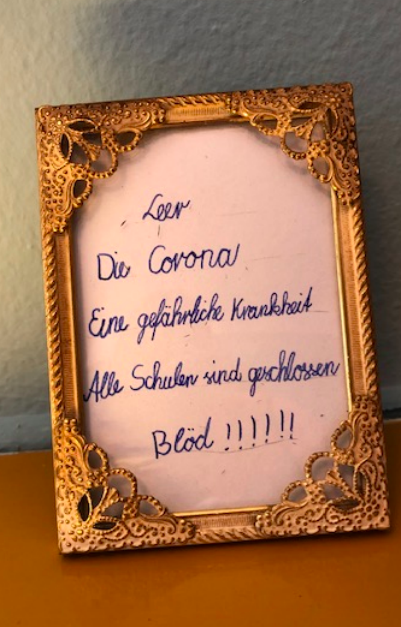 Leer
Die Corona
Eine gefährliche Krankheit
Alle Schulen sind geschlossen
Blöd !!!!!!